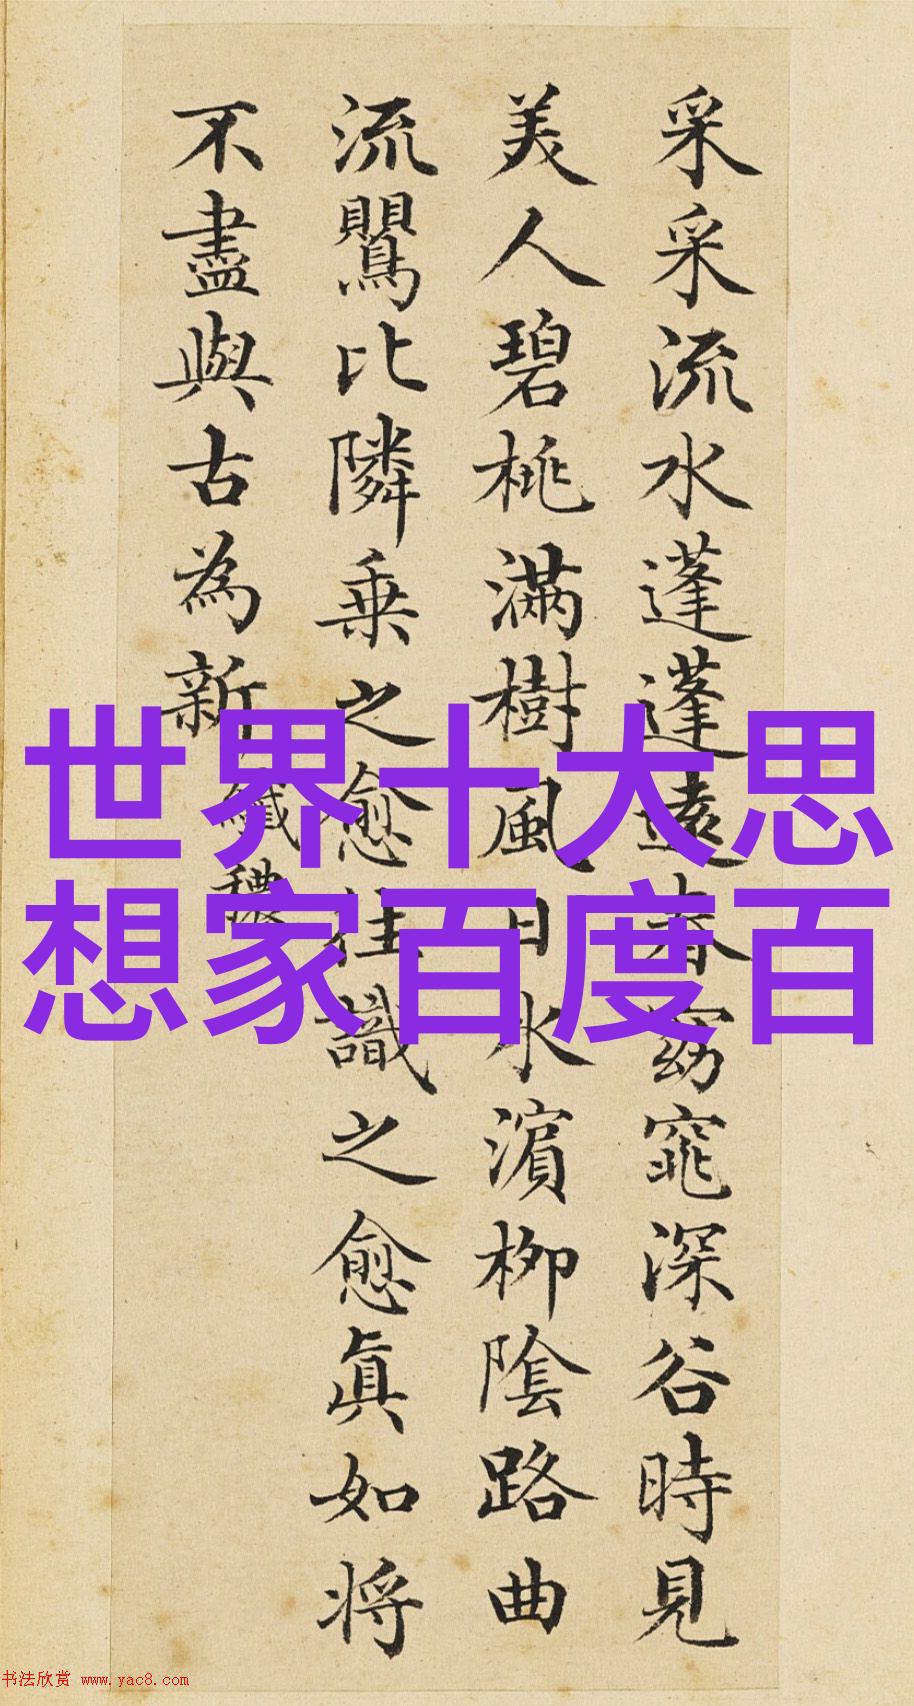 采采流水蓬蓬遠春窈窕深谷時見
美人碧桃滿樹風日水濵柳陰路曲
流鸎比隣乗之愈往識之愈眞如将
不盡與古為新 纖穠
世界十大思
想家百度百
书法欣赏 www.yac8.com